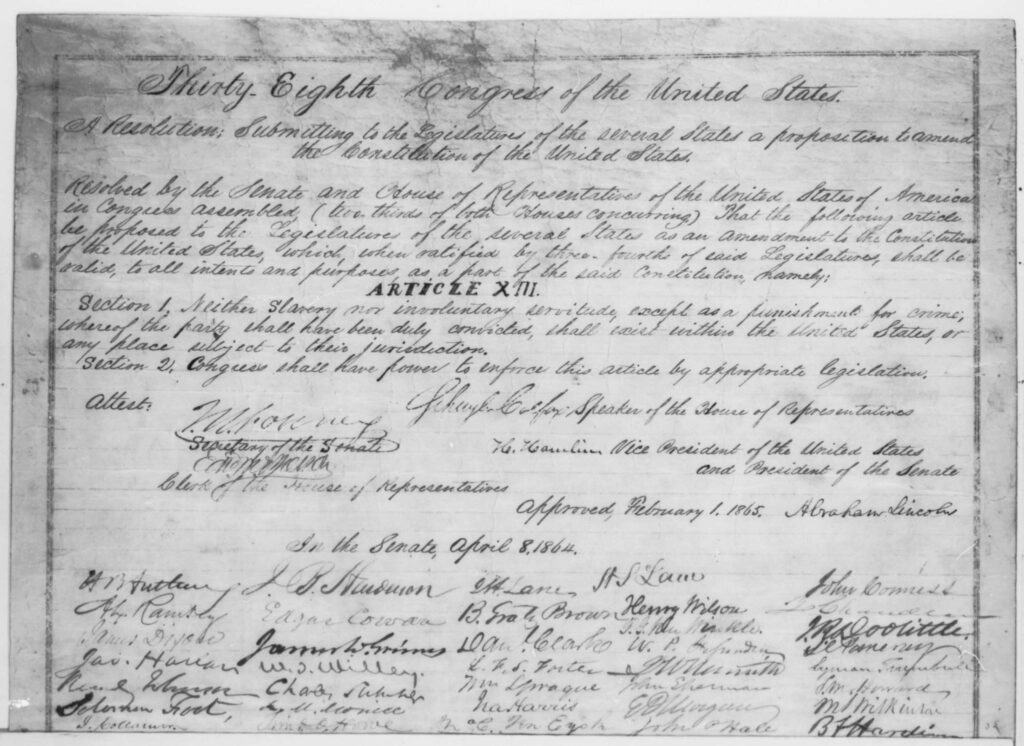 Thirty-Eighth Congress of the United States.
A Resolution; Submitting to the Legislatures of the several States a proposition to amend
the Constitution of the United States.
Resolved by the Senate and House of Representatives of the United States of America
in Congress assembled, (two thirds of both Houses concurring) That the following article
be proposed to the Legislatures of the several States as an amendment to the Constitution
of the United States, which, when ratified by three-fourths of said Legislatures, shall be
valid, to all intents and purposes, as a part of the said Constitution, namely:
ARTICLE XIII.
Section 1. Neither Slavery nor involuntary servitude, except as a punishment for crime,
whereof the party shall have been duly convicted, shall exist within the United States, or
any place subject to their jurisdiction.
Section 2. Congress shall have power to enforce this article by appropriate legislation.
Attest:
Schuyler Colfax Speaker of the House of Representatives
J. W. Forney
Secretary of the Senate
H. Hamlin Vice President of the United States
and President of the Senate
Clerk of the House of Representatives
Approved, February 1. 1865. Abraham Lincoln
In the Senate, April 8, 1864.
J. B. Henderson J H Lane H S Lane John Conness
Alex Ramsey Edgar Cowan B. Gratz Brown Henry Wilson
James W. Grimes Danl Clark J R Doolittle.
Jas. Harlan W. T. Willey. L. F. S. Foster Lyman Trumbull
Charles Sumner Wm Sprague John Sherman
Solomon Foot, Ira Harris E D Morgan M S Wilkinson
J. Collamer John P Hale B F Harding